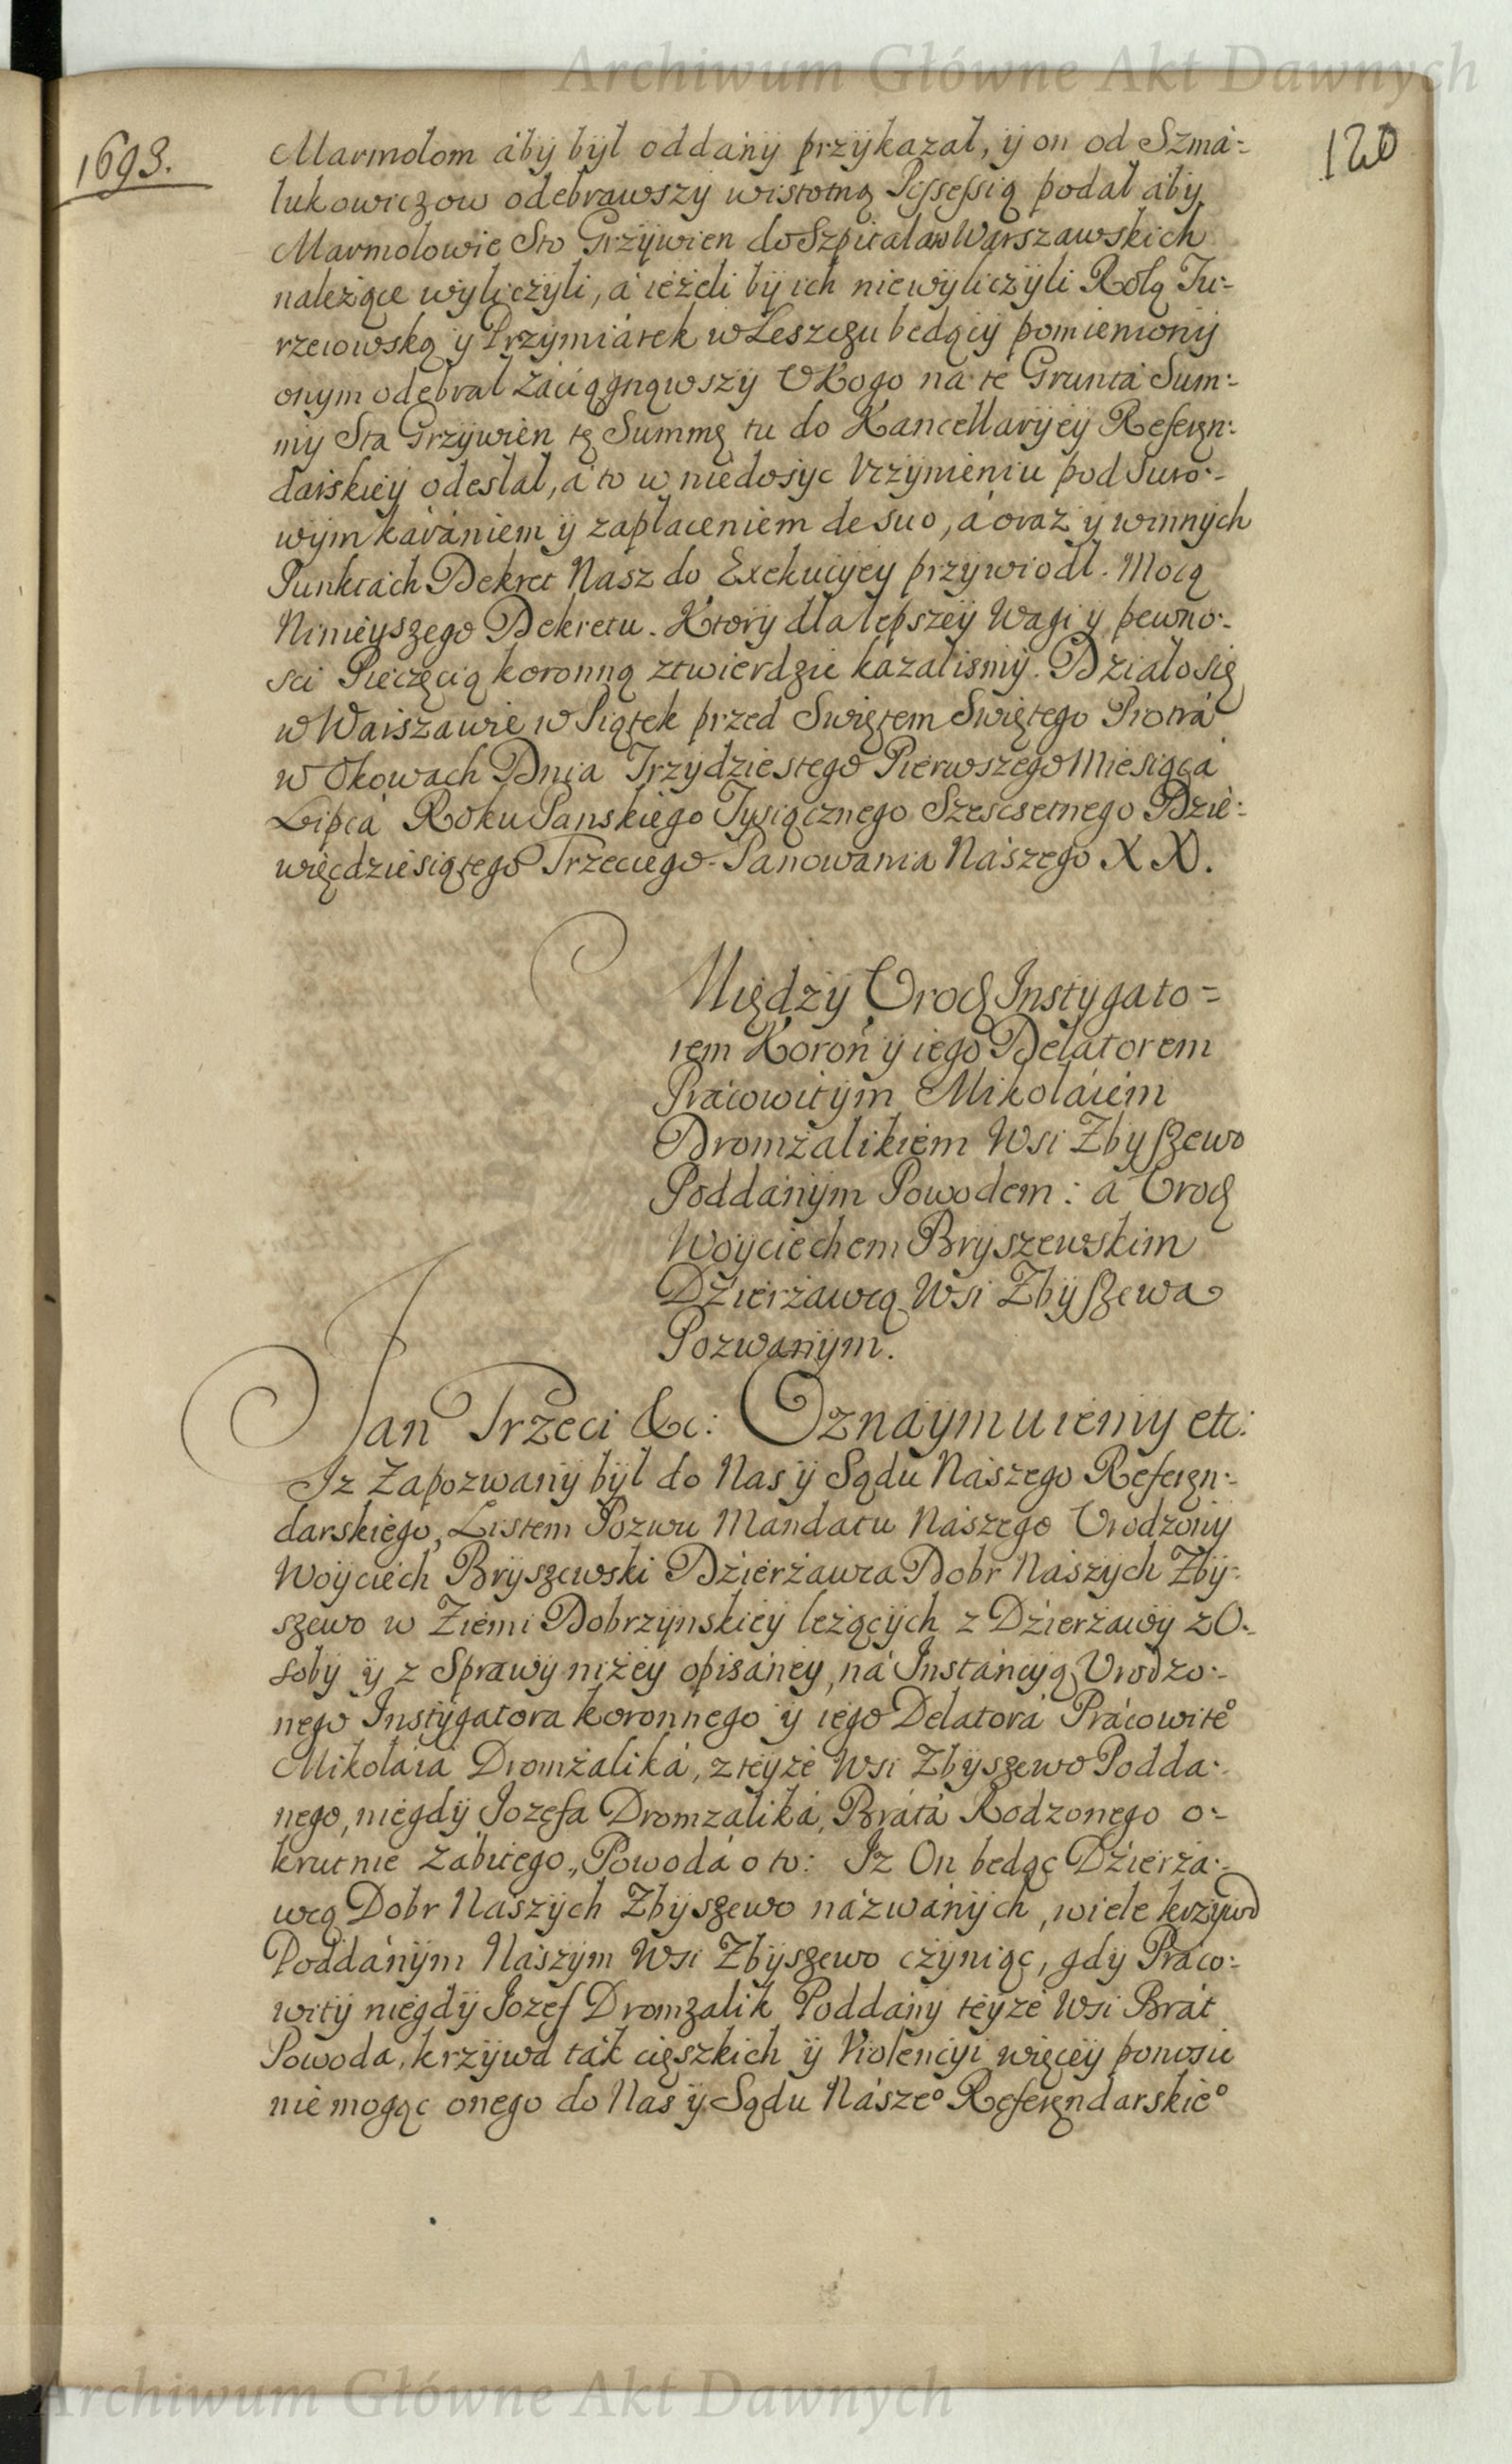 Archiwum Główne Akt Dawnych
1693.
120
Marmolom áby był oddány przykazał, y on od Szmá-
lukowiczow odebrawszy wistotną Possessią podał áby
Marmolowie Sto Grzywien do Szpitalow Warszawskich
należące wyliczyli, á ieżeli by ich niewyliczyli Rolą Ju-
rzewowską y Przymiárek w Leszczu będący pomieniony
onym odebrał záciągnąwszy v Kogo na te Gruntá Sum-
my Sta Grzywien tę Summę tu do Kancellaryey Referen-
darskiey odesłał, á to w niedosyc vczynieniu pod suro-
wym káraniem y zapłaceniem de suo, á oraz y winnych
Punktach Dekret Nasz do Exekucyey przywiodł. Mocą
Ninieyszego Dekretu. Ktory dla lepszey Wagi y pewno-
sci Pieczęcią koronną ztwierdzic kazalismy. Działo się
w Warszawie w Piątek przed Swiętem Swiętego Piotrá
w Okowach Dnia Trzydziestego Pierwszego Miesiąca
Lipcá Roku Panskiego Tysiącznego Szescsetnego Dzie-
więcdziesiątego Trzeciego. Panowania Nászego XX.
Między Urod Instygato-
rem Koron y iego Delatorem
Prácowitym Mikołáiem
Dromżalikiem Wsi Zbyszewo
Poddánym Powodem: á Urod
Woyciechem Bryszewskim
Dzierżawcą Wsi Zbyszewa
Pozwanym.
Jan Trzeci &c: Oznaymuiemy etc:
Iz Zapozwany był do Nas y Sądu Nászego Referen-
darskiego, Listem Pozwu Mandatu Nászego Urodzony
Woyciech Bryszewski Dzierżawca Dobr Nászych Zby-
szewo w Ziemi Dobrzynskiey leżących z Dzierżawy z O-
soby y z Sprawy niżey opisáney, ná Instáncyą Vrodzo-
nego Instygatora koronnego y iego Delatorá Prácowite°
Mikołáia Dromżaliká, z teyże Wsi Zbyszewo Podda-
nego, niegdy Jozefa Dromzaliká, Brátá Rodzonego o-
krutnie zábitego, Powodá o to: Iz On będąc Dzierża-
wcą Dobr Nászych Zbyszewo názwánych, wiele krzywd
Poddánym Nászym Wsi Zbyszewo czyniąc, gdy Práco-
wity niegdy Jozef Dromzalik Poddány teyże Wsi Brát
Powoda, krzywd ták cięszkich y Violencyi więcey ponosic
nie mogąc onego do Nas y Sądu Násze° Referendarskie°
Archiwum Główne Akt Dawnych